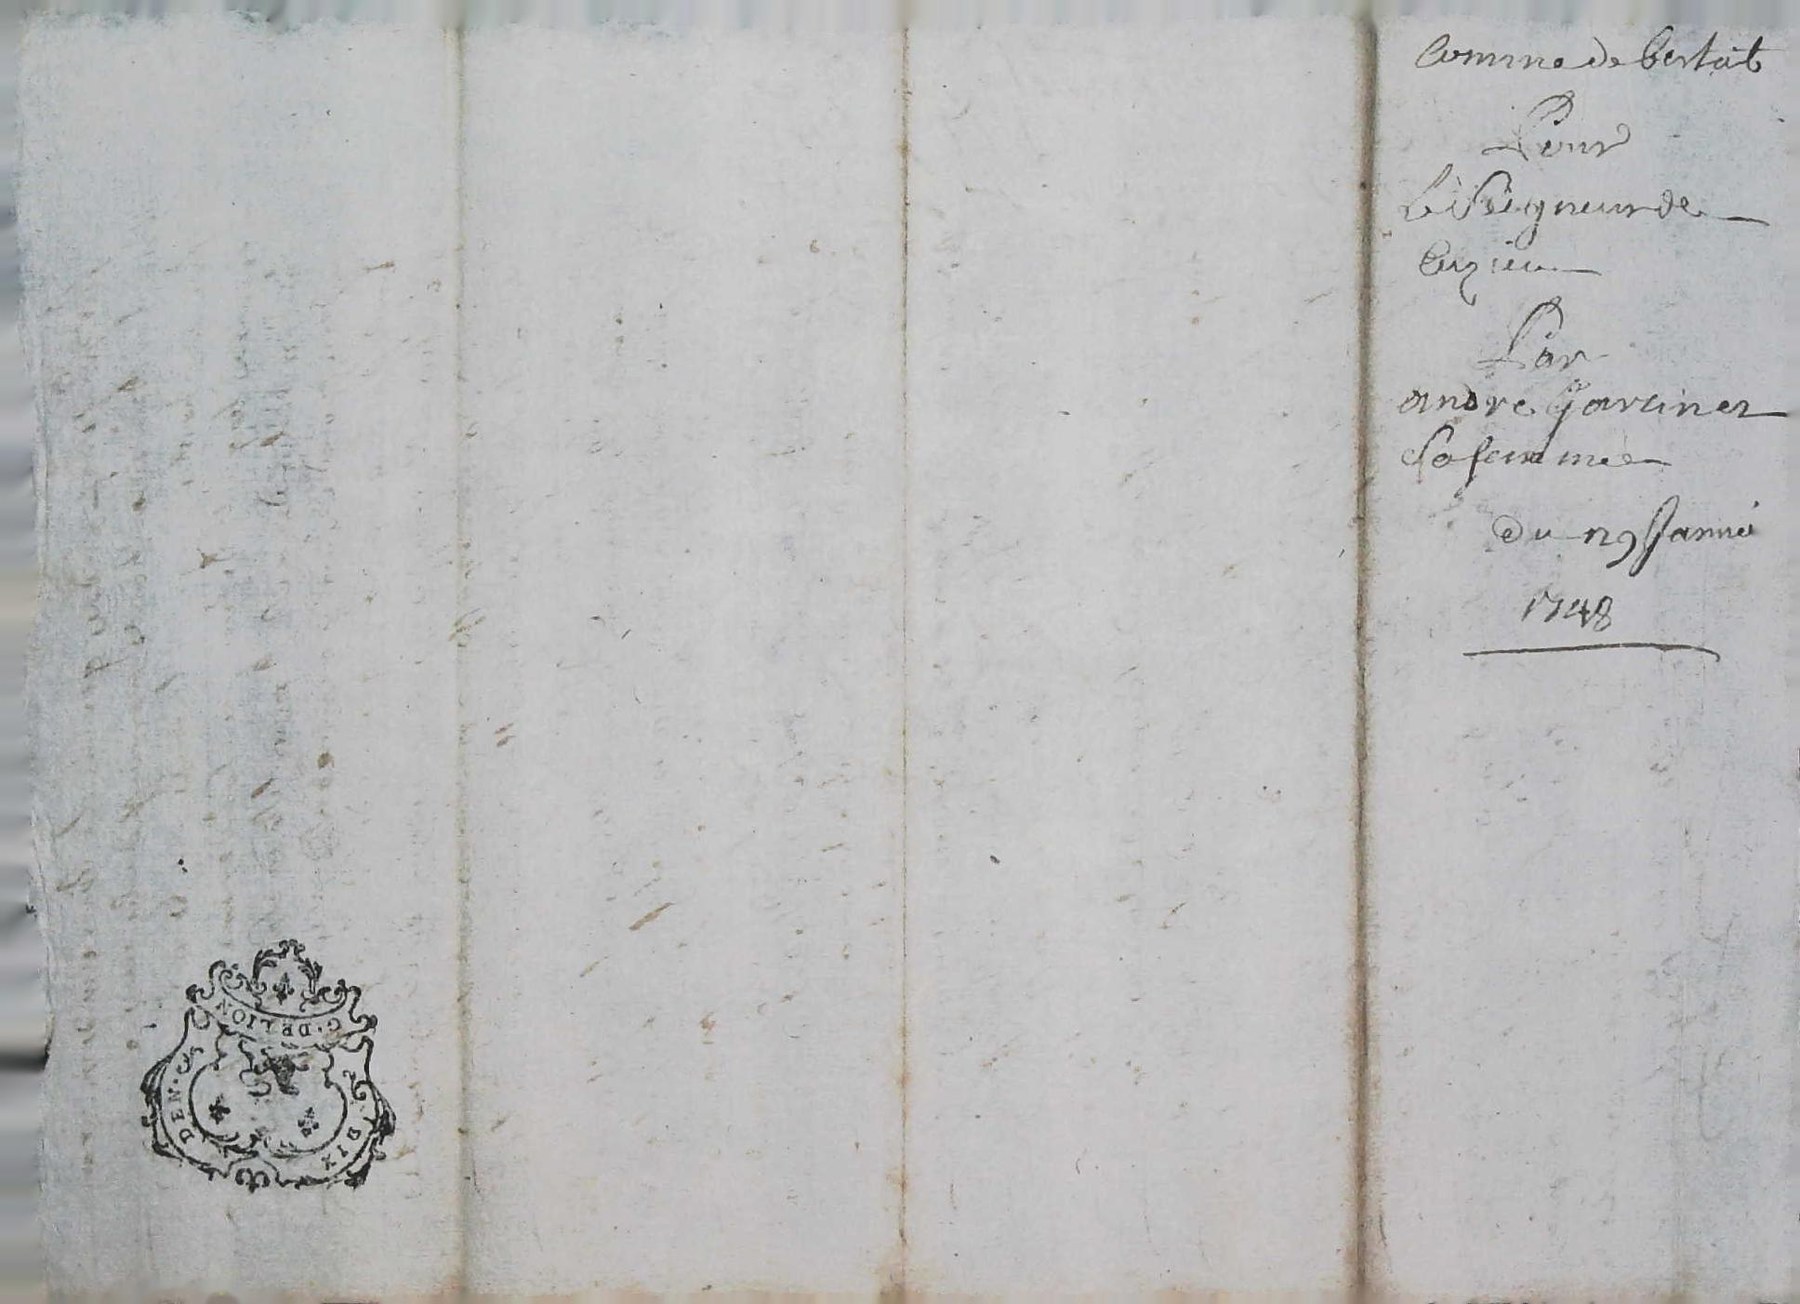 Comme de bestail
Pour
Le Seigneur de
Cuzieu
Par
andre Jardiner
Sa femme
du 29 Janvié
1748
G. DE LION
SIX DEN.